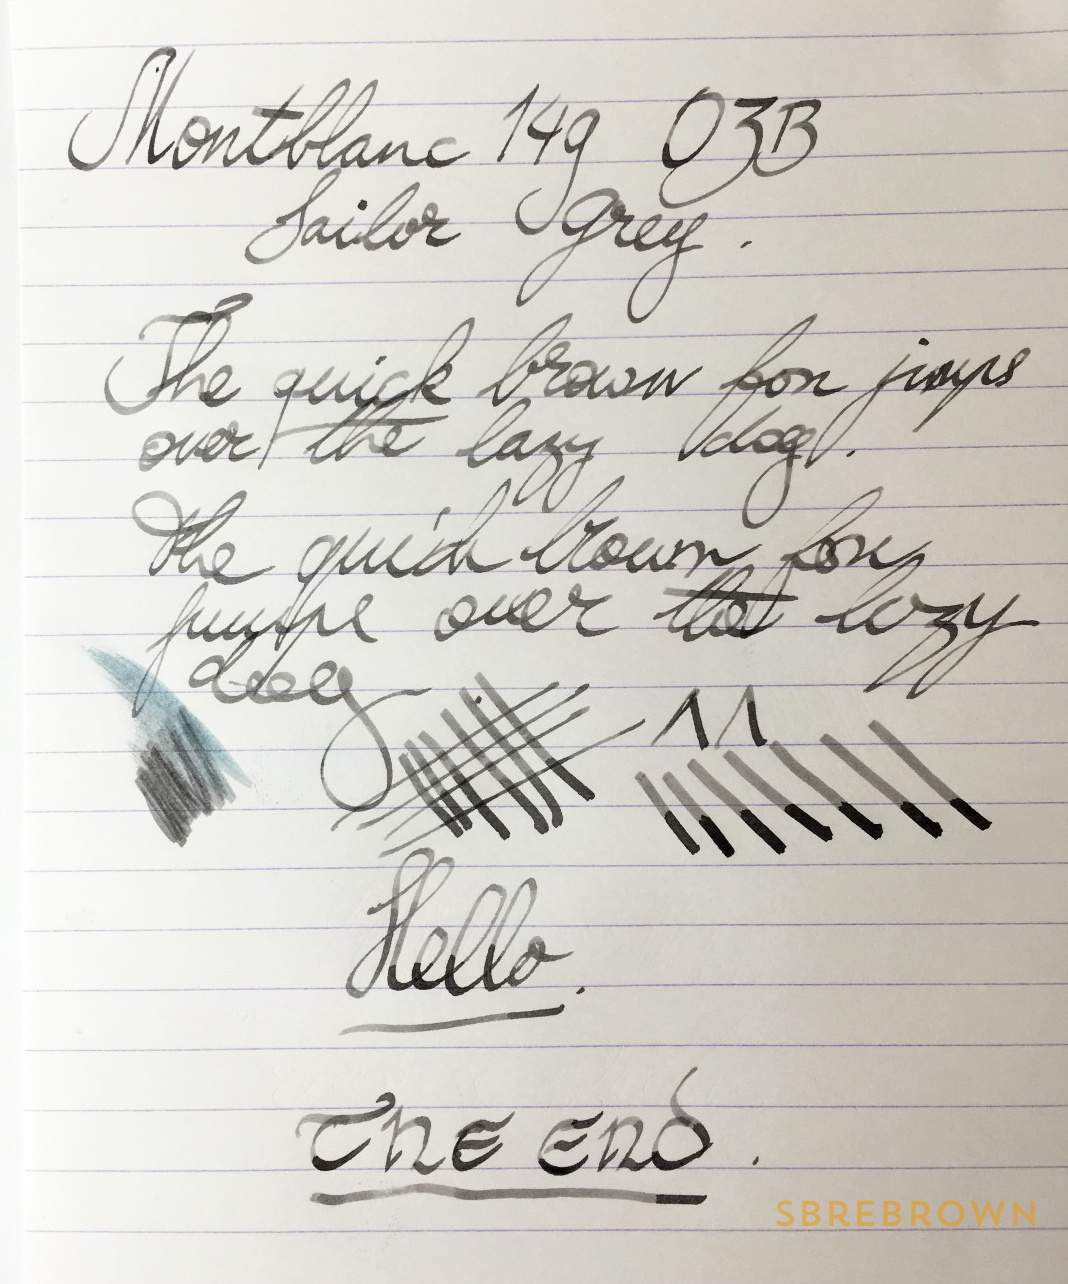 Montblanc 149 O3B
Sailor Grey.
The quick brown fox jumps
over the lazy dog.
The quick brown fox
jumps over the lazy
dog
Hello.
The End.
SBREBROWN